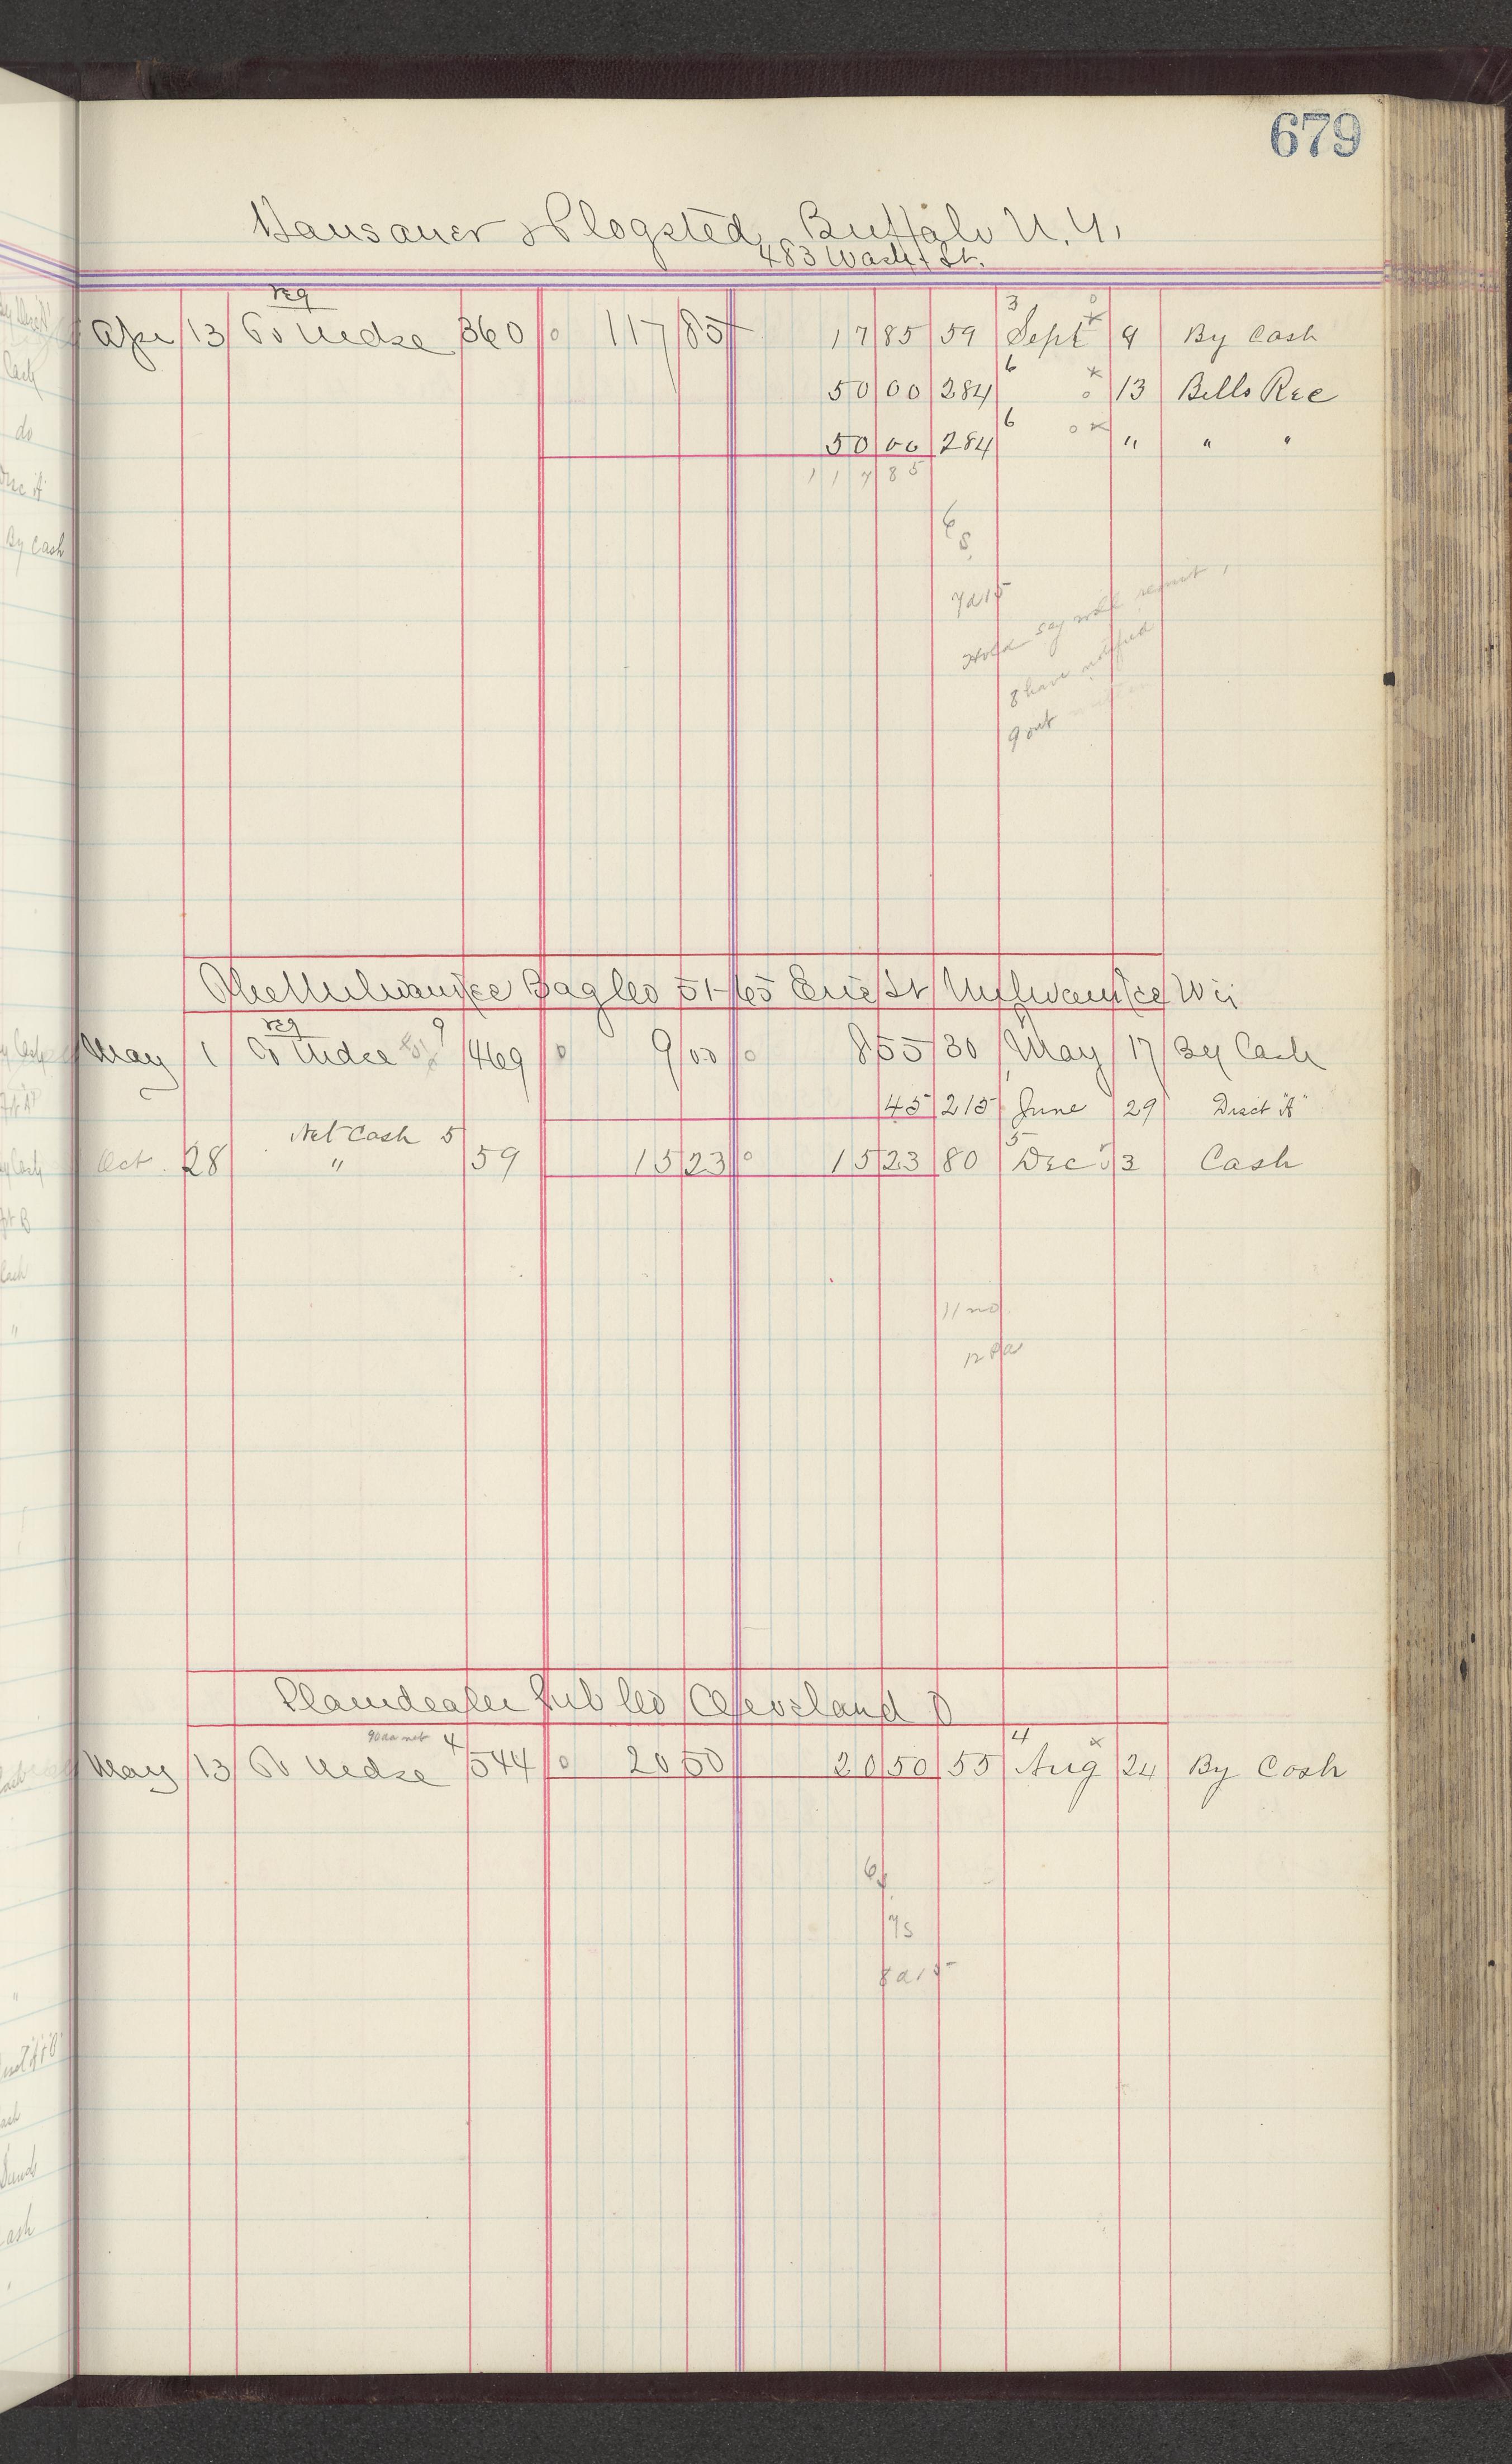 679
Hausauer & Plogsted, Buffalo N.Y.
483 Wash't St.
reg 3
Apr 13 To Mdse 360 117 85 17 85 59 Sept 9 By Cash
50 00 284 6 13 Bills Rec
50 00 284 6 " " "
117 85
6
s
7 d 15
Hold say will remit
8 have notified
9 out
The Milwaukee Bag Co 51-65 Erie St Milwaukee Wis
reg 9
May 1 To Mdse 469 9 00 8 55 30 May 17 By Cash
45 215 June 29 Disct "A"
Net Cash 5 5
Oct. 28 " 59 15 23 15 23 80 Dec 3 Cash
11 no
12 Pd
Plaindealer Pub Co Cleveland O
90 da net 4 4
May 13 To Mdse 544 20 50 20 50 55 Aug 24 By Cash
6 s
7 s
8 d 15